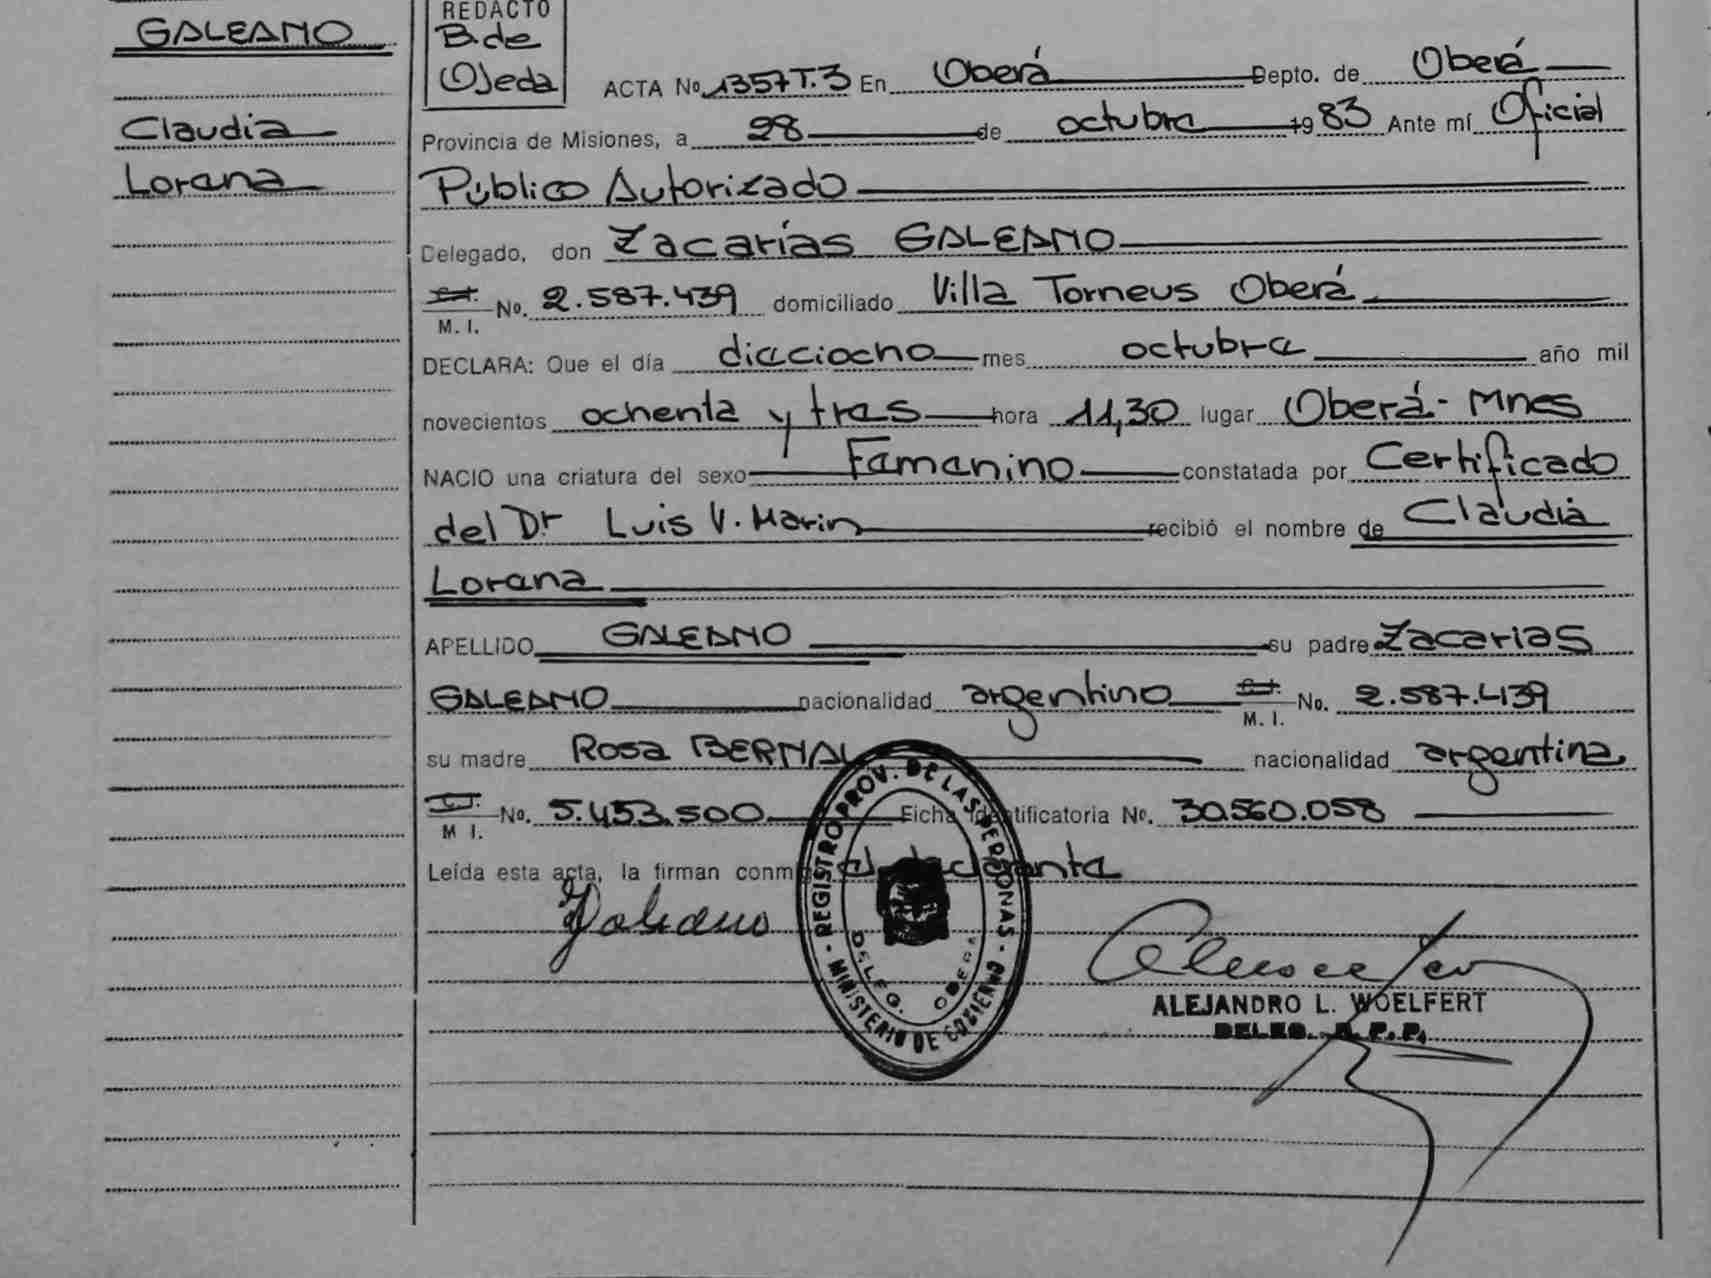 GALEANO
Claudia
Lorena
REDACTO
B. de
Ojeda
ACTA No. 1357 T.3 En Oberá Depto. de Oberá
Provincia de Misiones, a 28 de octubre 1983 Ante mí Oficial
Público Autorizado
Delegado, don Zacarías GALEANO
M. I. No. 2.587.439 domiciliado Villa Torneus Oberá
DECLARA: Que el día dieciocho mes octubre año mil
novecientos ochenta y tres hora 11,30 lugar Oberá - Mnes
NACIO una criatura del sexo Femenino constatada por Certificado
del Dr Luis V. Marin recibió el nombre de Claudia
Lorena
APELLIDO GALEANO su padre Zacarias
GALEANO nacionalidad argentino M. I. No. 2.587.439
su madre Rosa BERNAL nacionalidad argentina
M I. No. 5.453.500 Ficha Identificatoria No. 30.560.058
Leída esta acta, la firman conmigo el declarante
Galeano
REGISTRO PROV. DE LAS PERSONAS - MINISTERIO DE GOBIERNO -
DELEG. OBERA
ALEJANDRO L. WOELFERT
DELEG. R. P. P.